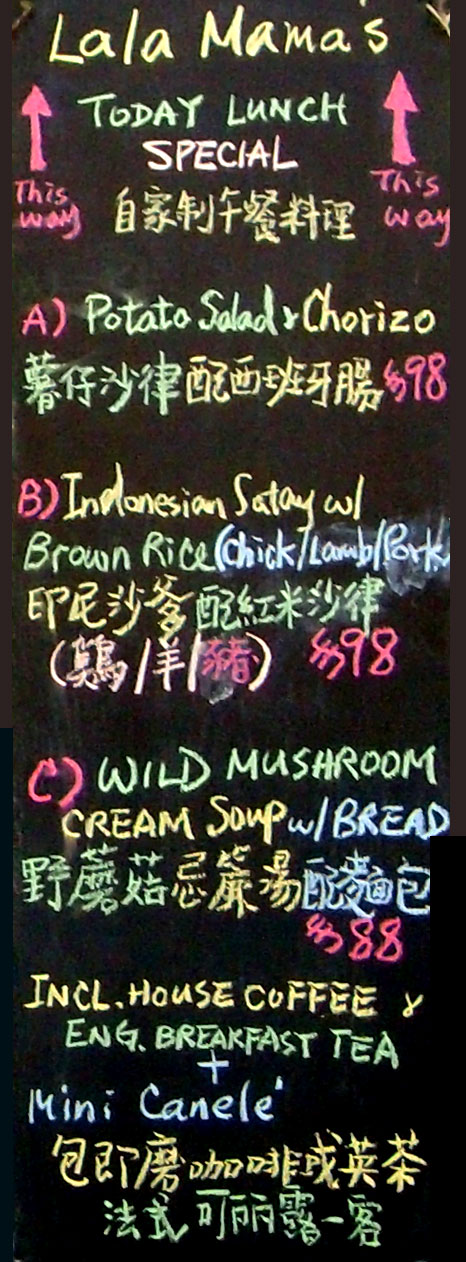 Lala Mama's
TODAY LUNCH
SPECIAL
This way
This way
自家制午餐料理
A) Potato Salad & Chorizo
薯仔沙律配西班牙腸 $98
B) Indonesian Satay w/
Brown Rice (Chick/Lamb/Pork
印尼沙爹配紅米沙律
(鷄/羊/豬) $98
C) WILD MUSHROOM
CREAM Soup w/ BREAD
野蘑菇忌簾湯配麵包
$88
INCL. HOUSE COFFEE &
ENG. BREAKFAST TEA
+
Mini Canele'
包即磨咖啡或英茶
法式可丽露一客